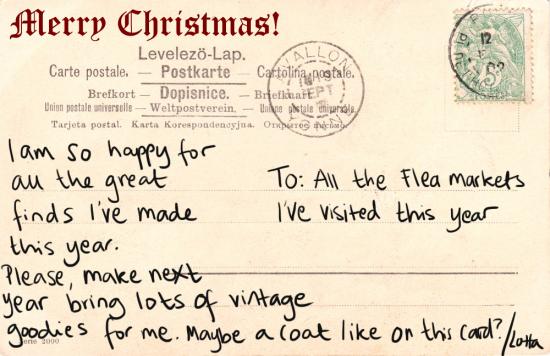 Merry Christmas!
Levelezö-Lap.
Carte postale. — Postkarte — Cartolina postale.
Brefkort — Dopisnice. — Briefkaart
Union postale universelle — Weltpostverein. — Unione postale universale
Tarjeta postal. Karta Korespondencyjna. Открытое письмо.
AVALLON
SEPT
YONNE
12
02
I am so happy for
all the great
finds I've made
this year.
Please, make next
year bring lots of vintage
goodies for me. Maybe a coat like on this card? /Lotta
To: All the Flea markets
I've visited this year
Serie 2000